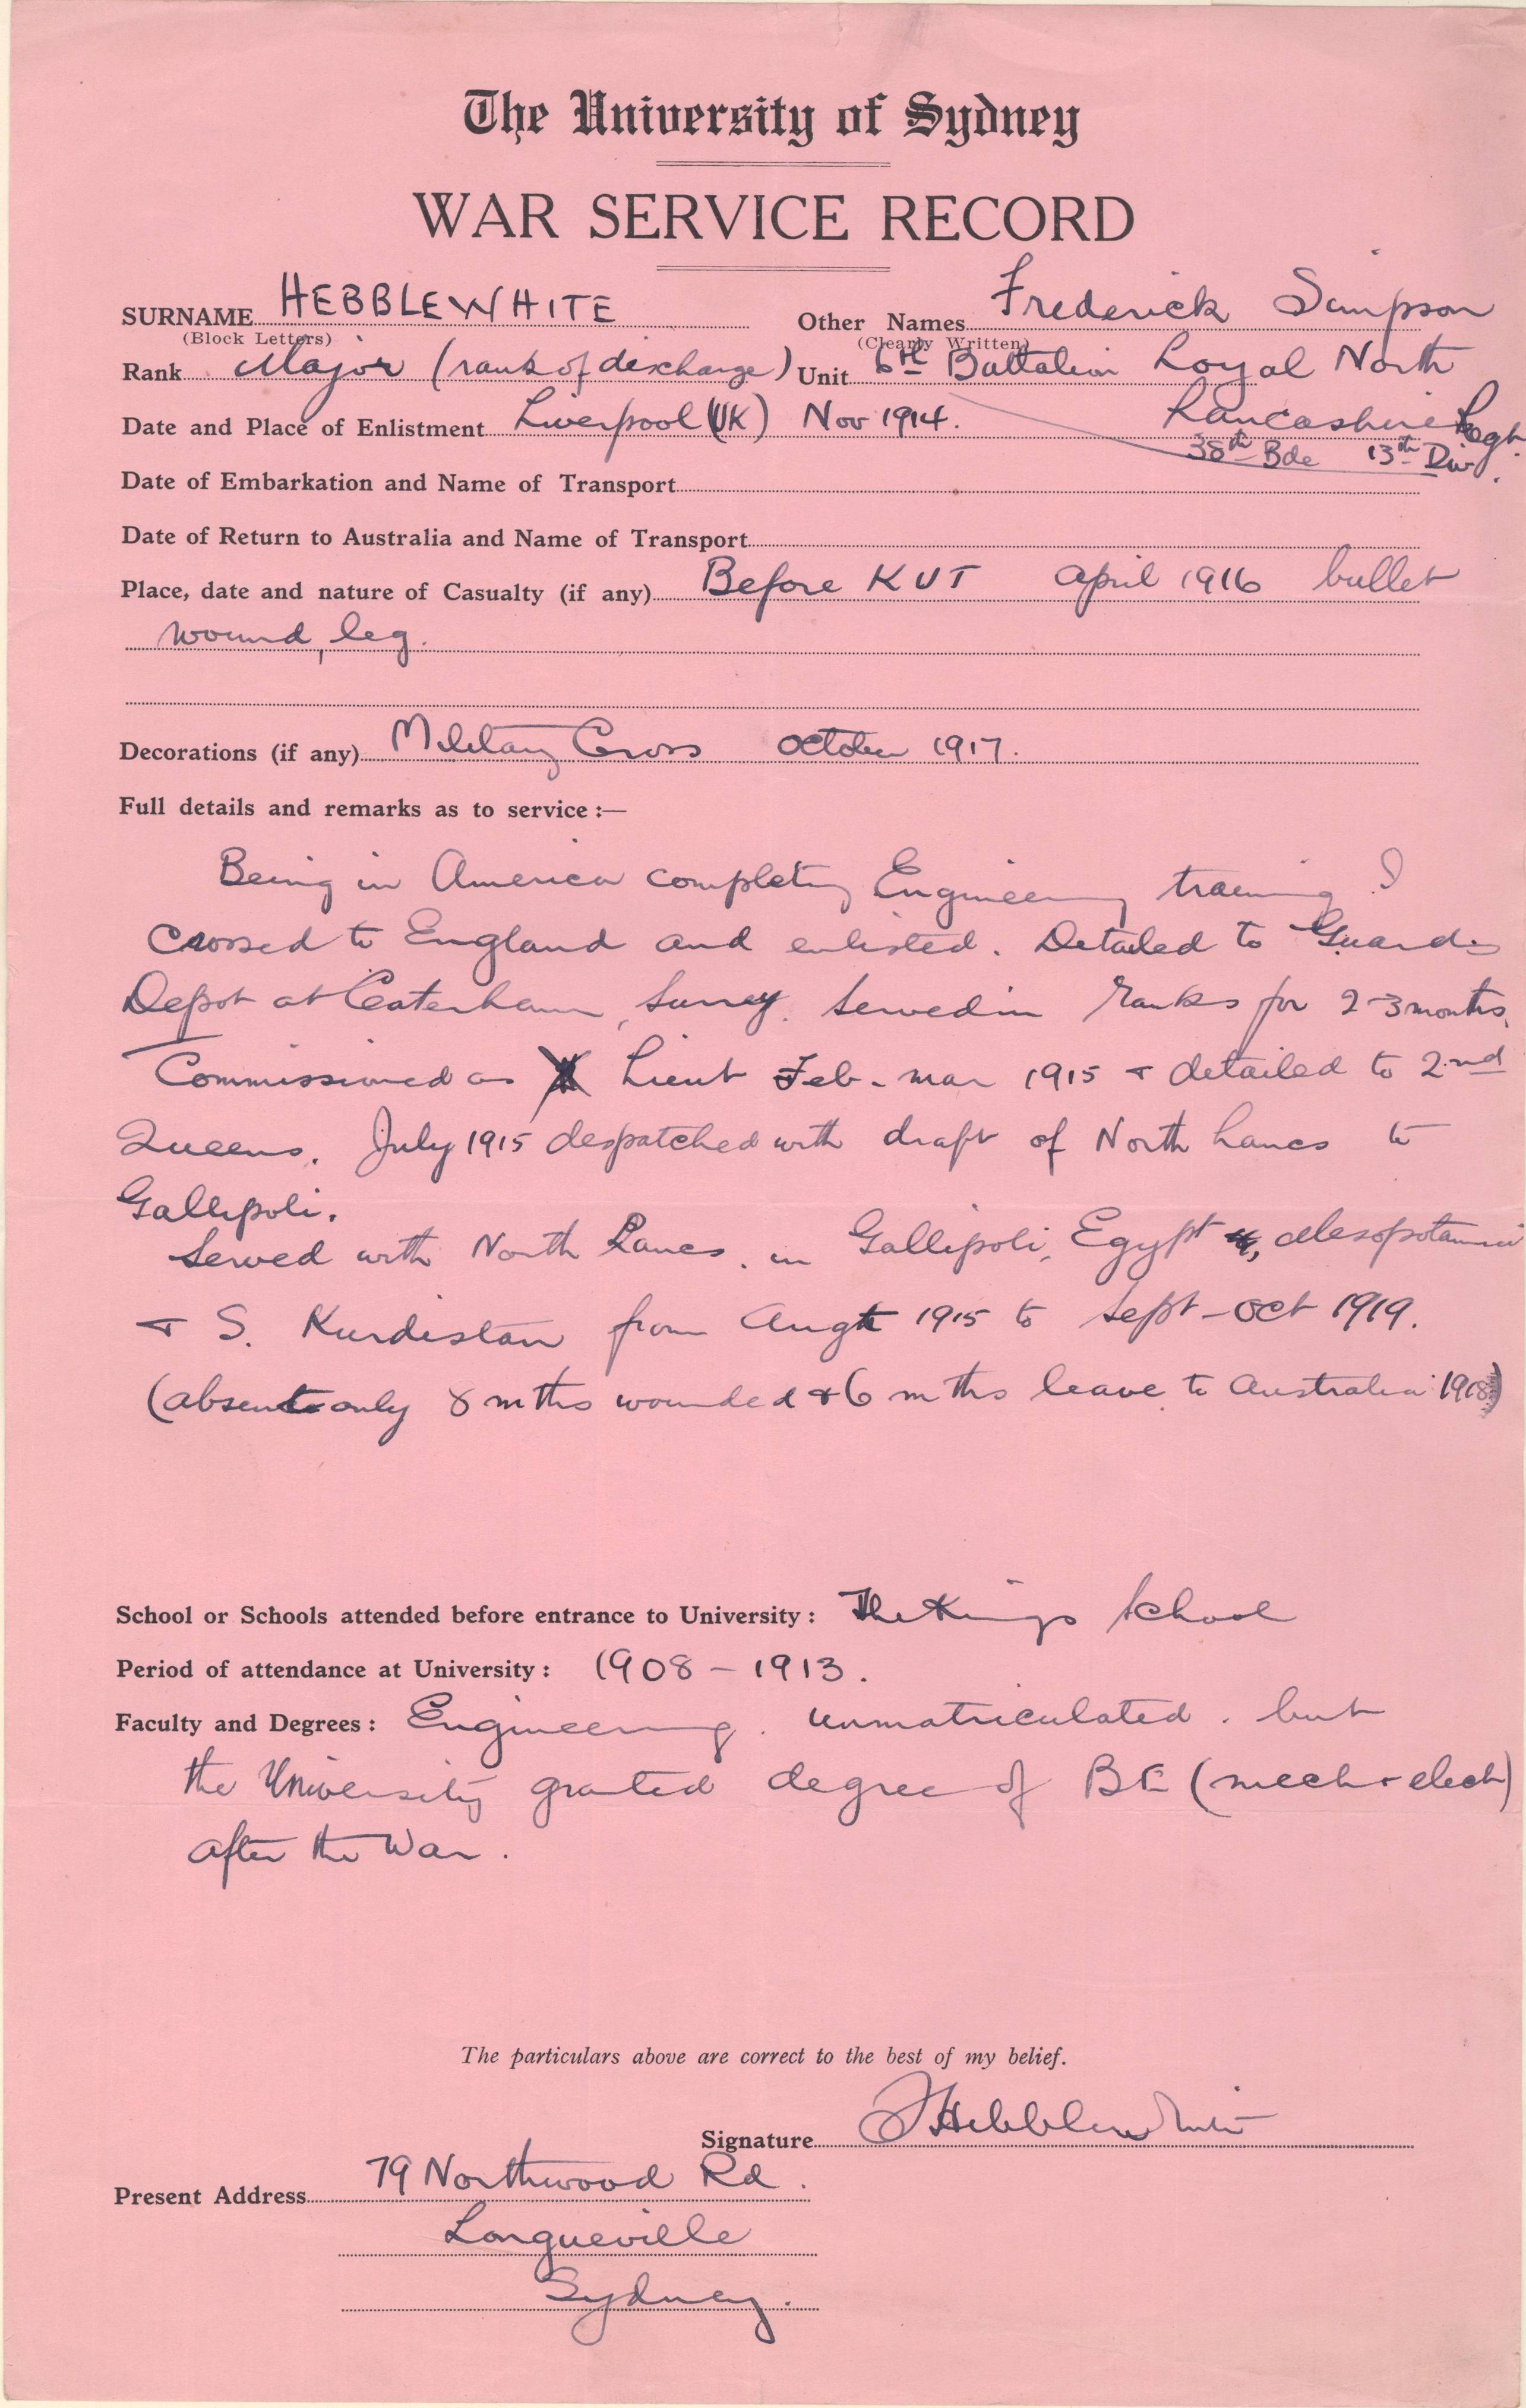 The University of Sydney
WAR SERVICE RECORD
SURNAME HEBBLEWHITE Other Names Frederick Simpson
(Block Letters) (Clearly Written)
Rank Major (rank of discharge) Unit 6th Battalion Loyal North
Date and Place of Enlistment Liverpool (UK) Nov 1914. Lancashire Regt.
38th Bde 13th Div.
Date of Embarkation and Name of Transport
Date of Return to Australia and Name of Transport
Place, date and nature of Casualty (if any) Before KUT April 1916 bullet
wound, leg.
Decorations (if any) Military Cross October 1917.
Full details and remarks as to service :—
Being in America completing Engineering training I
crossed to England and enlisted. Detailed to Guards
Depot at Caterham, Surrey. Served in ranks for 2-3 months.
Commissioned as Lieut Feb-Mar 1915 & detailed to 2nd
Queens. July 1915 despatched with draft of North Lancs to
Gallipoli.
Served with North Lancs. in Gallipoli, Egypt, Mesopotamia
& S. Kurdistan from Augt 1915 to Sept-Oct 1919.
(absent only 8 mths wounded & 6 mths leave to Australia 1918)
School or Schools attended before entrance to University : The Kings School
Period of attendance at University : 1908 - 1913.
Faculty and Degrees : Engineering. unmatriculated. but
the University granted degree of BE (mech & elect)
after the War.
The particulars above are correct to the best of my belief.
Signature FHebblewhite
Present Address 79 Northwood Rd.
Longueville
Sydney.